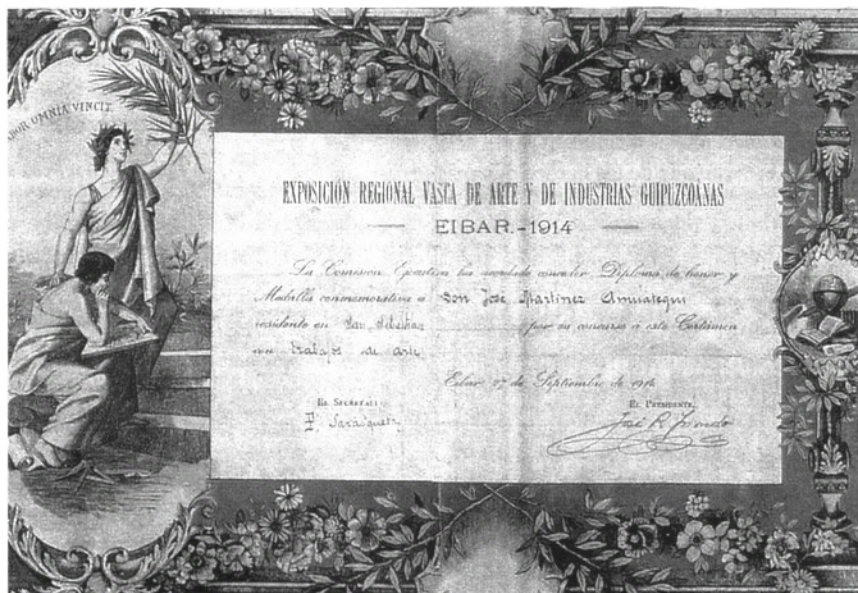 LABOR OMNIA VINCIT
EXPOSICIÓN REGIONAL VASCA DE ARTE Y DE INDUSTRIAS GUIPUZCOANAS
EIBAR.-1914
La Comisión Ejecutiva ha acordado conceder Diploma de honor y
Medalla conmemorativa a Don José Martínez Amuategui
residente en San Sebastian por su concurso á este Certámen
con trabajos de arte
Eibar 27 de Septiembre de 1914
EL SECRETARIO
EL PRESIDENTE,
F. Sarasqueta
José R.